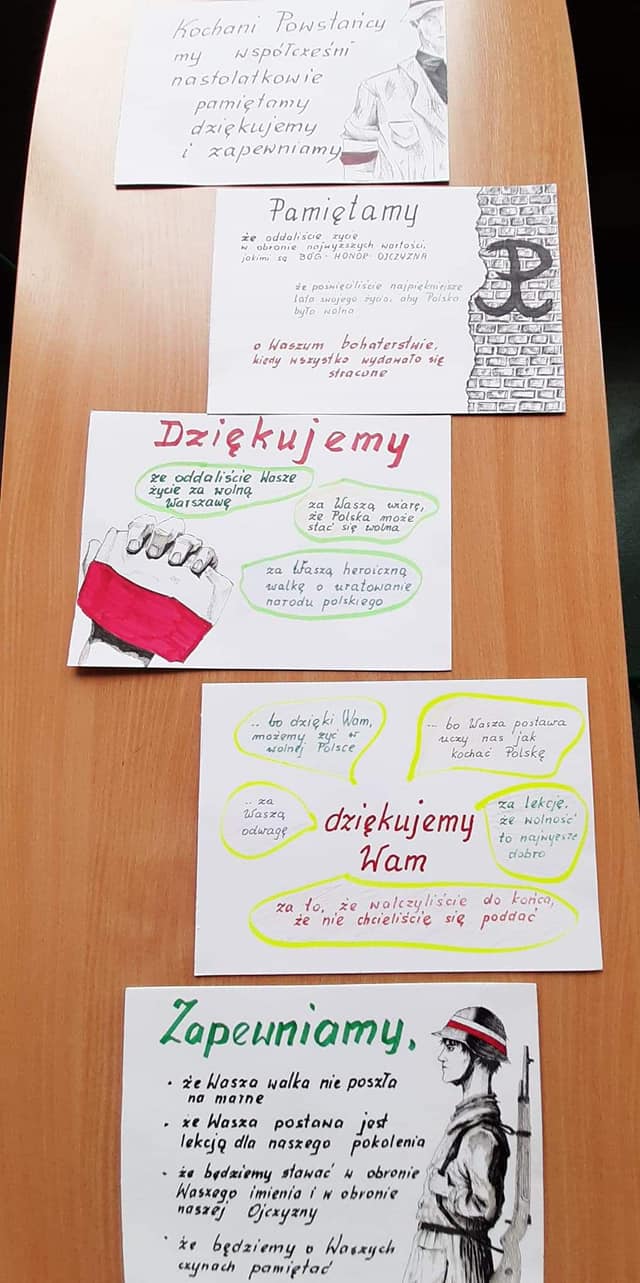 Kochani Powstańcy
my współcześni
nastolatkowie
pamiętamy
dziękujemy
i zapewniamy
Pamiętamy
że oddaliście życie
w obronie najwyższych wartości,
jakimi są BÓG · HONOR · OJCZYZNA
że poświęciliście najpiękniejsze
lata swojego życia, aby Polska
była wolna
o Waszym bohaterstwie,
kiedy wszystko wydawało się
stracone
Dziękujemy
że oddaliście Wasze
życie za wolną
Warszawę
za Waszą wiarę,
że Polska może
stać się wolna
za Waszą heroiczną
walkę o uratowanie
narodu polskiego
.. bo dzięki Wam,
możemy żyć w
wolnej Polsce
... bo Wasza postawa
uczy nas jak
kochać Polskę
.. za
Waszą
odwagę
dziękujemy
Wam
za lekcję,
że wolność
to najwyższe
dobro
za to, że walczyliście do końca,
że nie chcieliście się poddać
Zapewniamy,
· że Wasza walka nie poszła
na marne
· że Wasza postawa jest
lekcją dla naszego pokolenia
· że będziemy stawać w obronie
Waszego imienia i w obronie
naszej Ojczyzny
· że będziemy o Waszych
czynach pamiętać